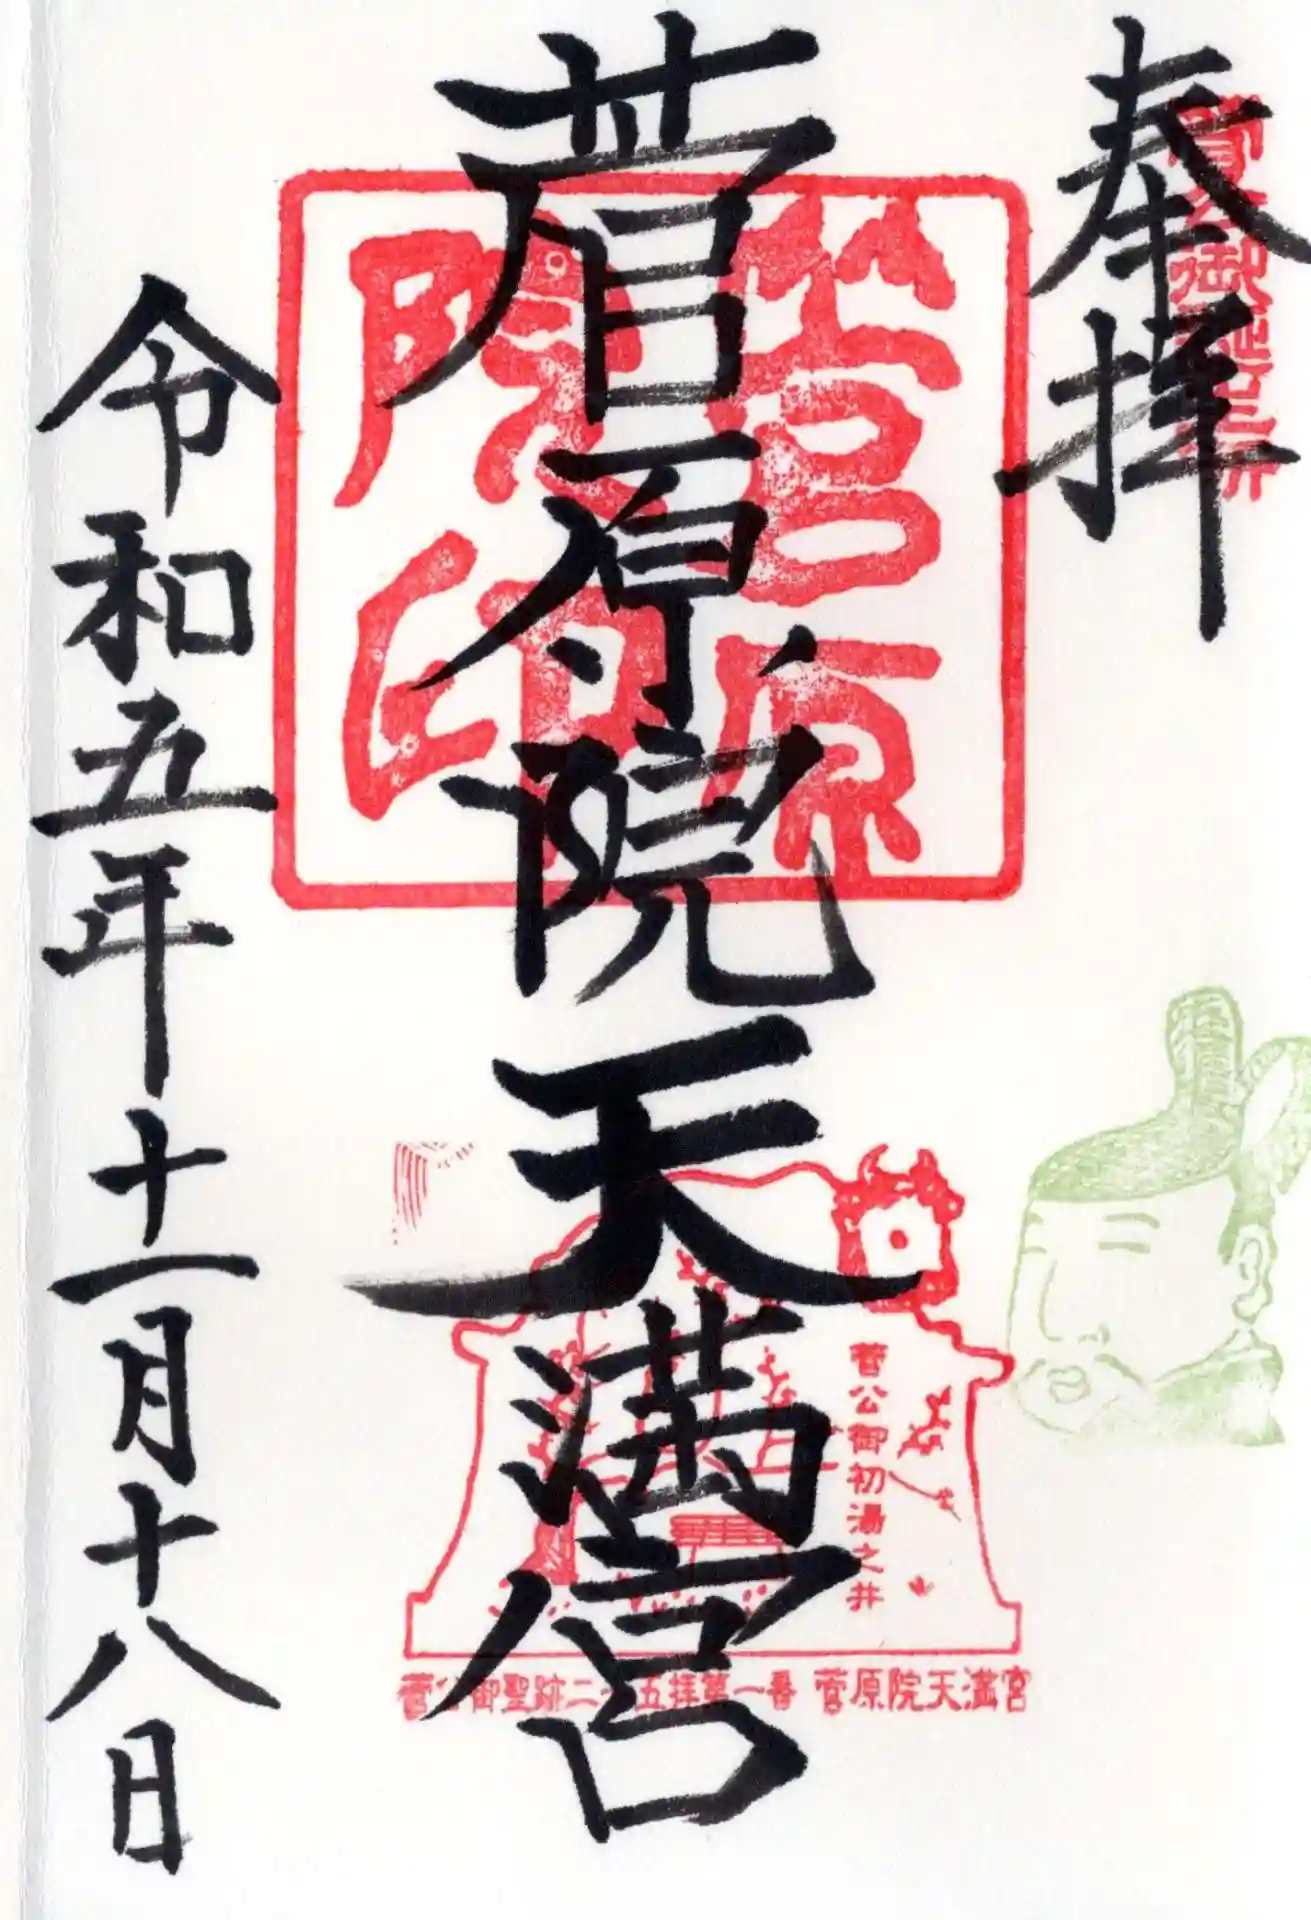 奉拝
菅公御誕生井
菅原院天満宮
菅原院印
菅公御初湯之井
菅公御聖跡二十五拝第一番 菅原院天満宮
令和五年十一月十八日